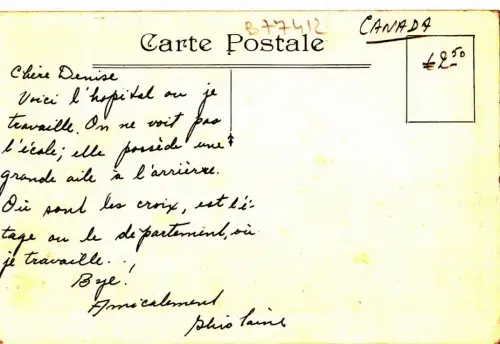 B77412
CANADA
Carte Postale
£2.50
Chère Denise
Voici l'hopital ou je
travaille. On ne voit pas
l'école; elle possède une
grande aile à l'arrière.
Où sont les croix, est l'é-
tage ou le département, où
je travaille..
Bye!
Amicalement
Ghislaine